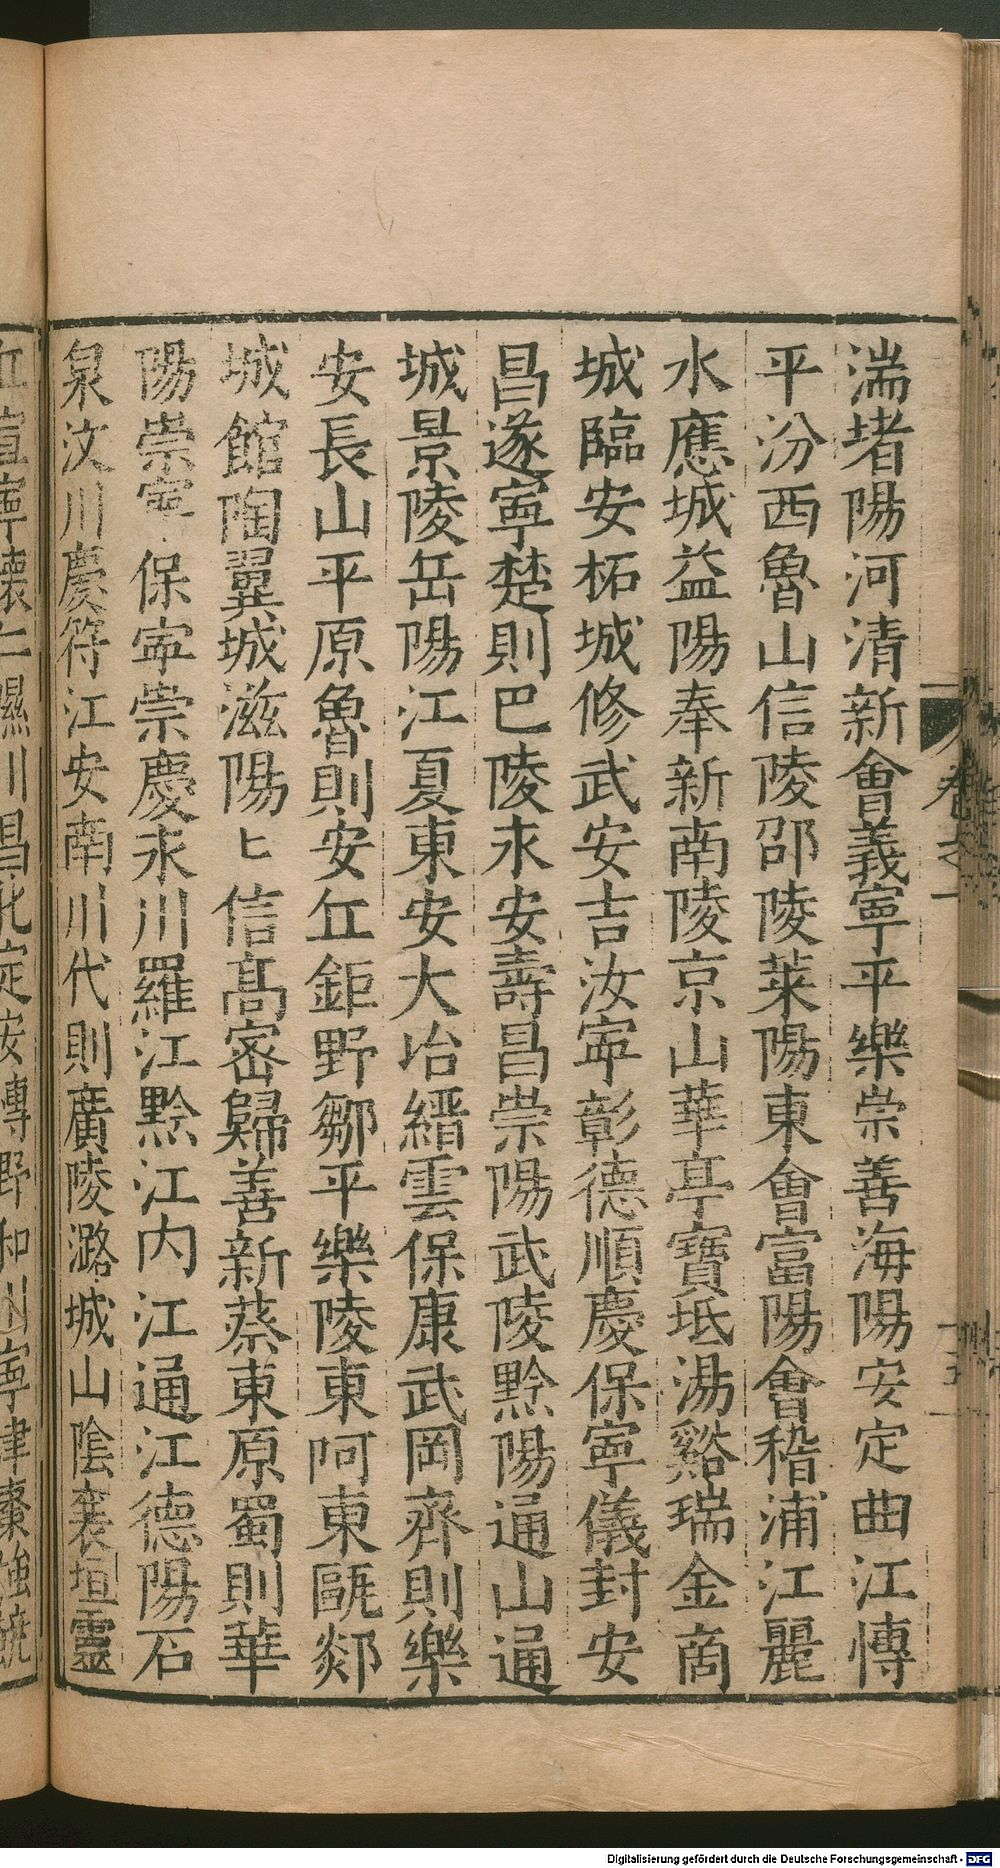 湍堵陽河清新會義寧平樂崇善海陽安定曲江慱
平汾西魯山信陵邵陵萊陽東會富陽會稽浦江麗
水應城益陽奉新南陵京山華亭寶坻湯谿瑞金商
城臨安柘城修武安吉汝寧彰德順慶保寧儀封安
昌遂寧楚則巴陵永安壽昌崇陽武陵黔陽通山通
城景陵岳陽江夏東安大冶縉雲保康武岡齊則樂
安長山平原魯則安丘鉅野鄒平樂陵東阿東甌郯
城館陶翼城滋陽匕信髙密歸善新蔡東原蜀則華
陽崇寧保寧崇慶永川羅江黔江内江通江德陽石
泉汶川慶符江安南川代則廣陵潞城山陰襄垣靈
丘 寧懷仁 川昌化定安博野和川寧津棗強
卷之一
Digitalisierung gefördert durch die Deutsche Forschungsgemeinschaft - DFG